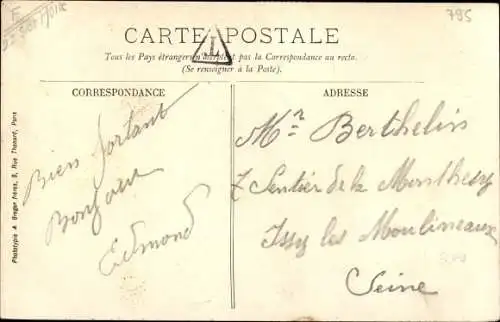 795
CARTE POSTALE
T
Tous les Pays étrangers n'acceptent pas la Correspondance au recto.
(Se renseigner à la Poste).
CORRESPONDANCE
Bien portant
Bonjour
Edmond
ADRESSE
Mr Berthelin
7 Sentier de la Monthery
Issy les Moulineaux
Seine
Phototypie A. Breger Frères, 9, Rue Thénard, Paris